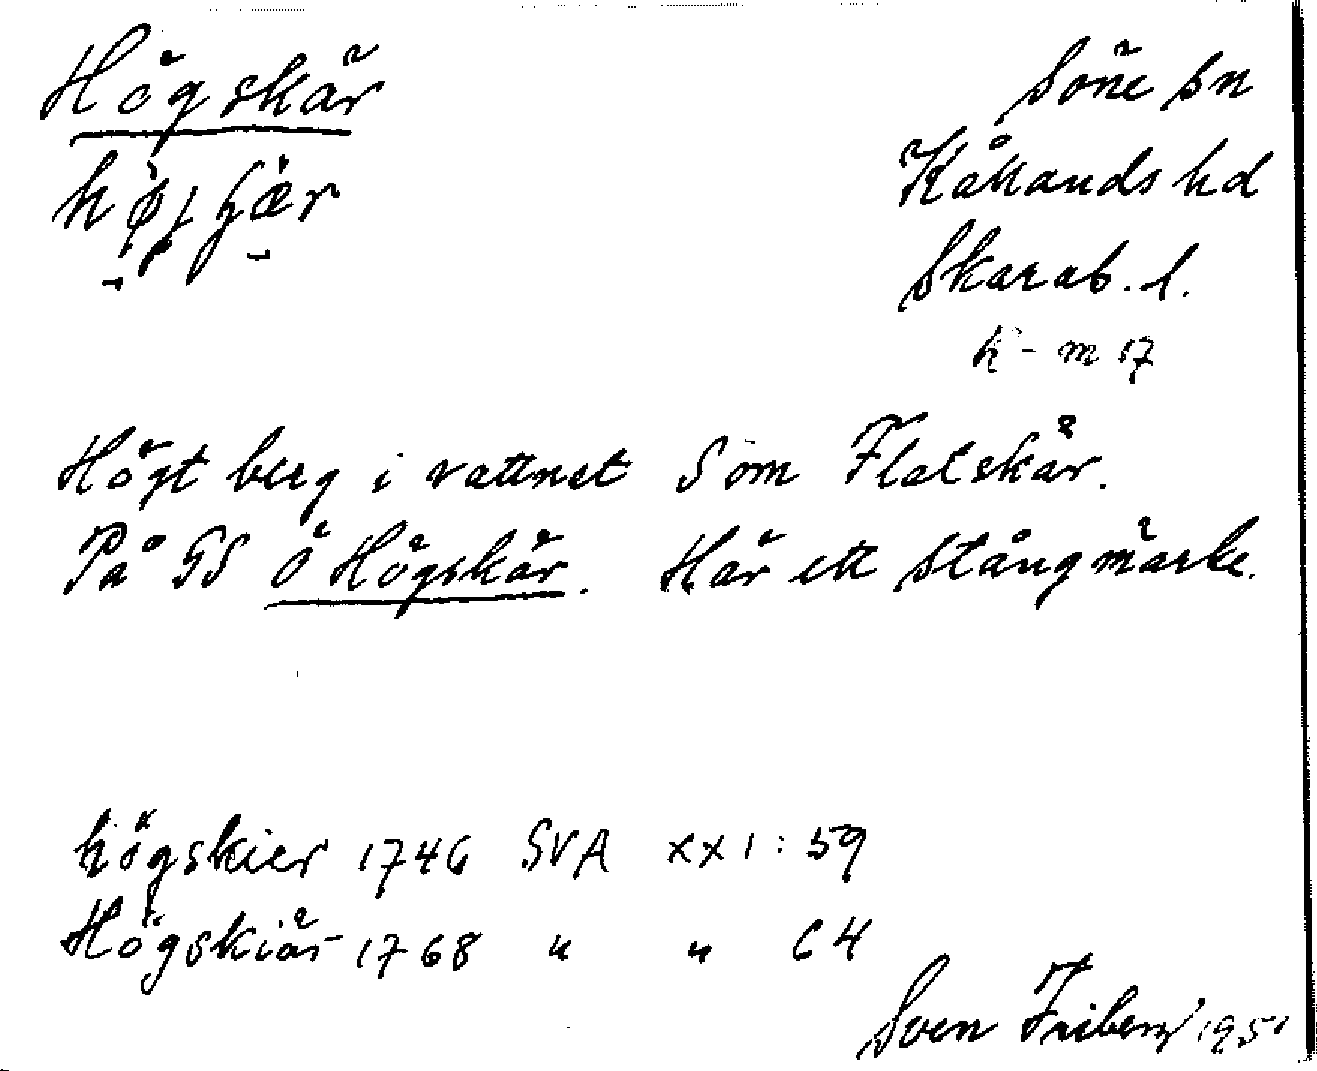 Högskär
Söne sn
Kållands hd
Skarab. l.
k - m 17
Högt berg i vattnet Som Flatskär.
På GS Ö Högskär. Här ett stångmärke.
högskier 1746 SVA XXI: 59
Högskiär 1768 " " 64
Sven Friberg 1951